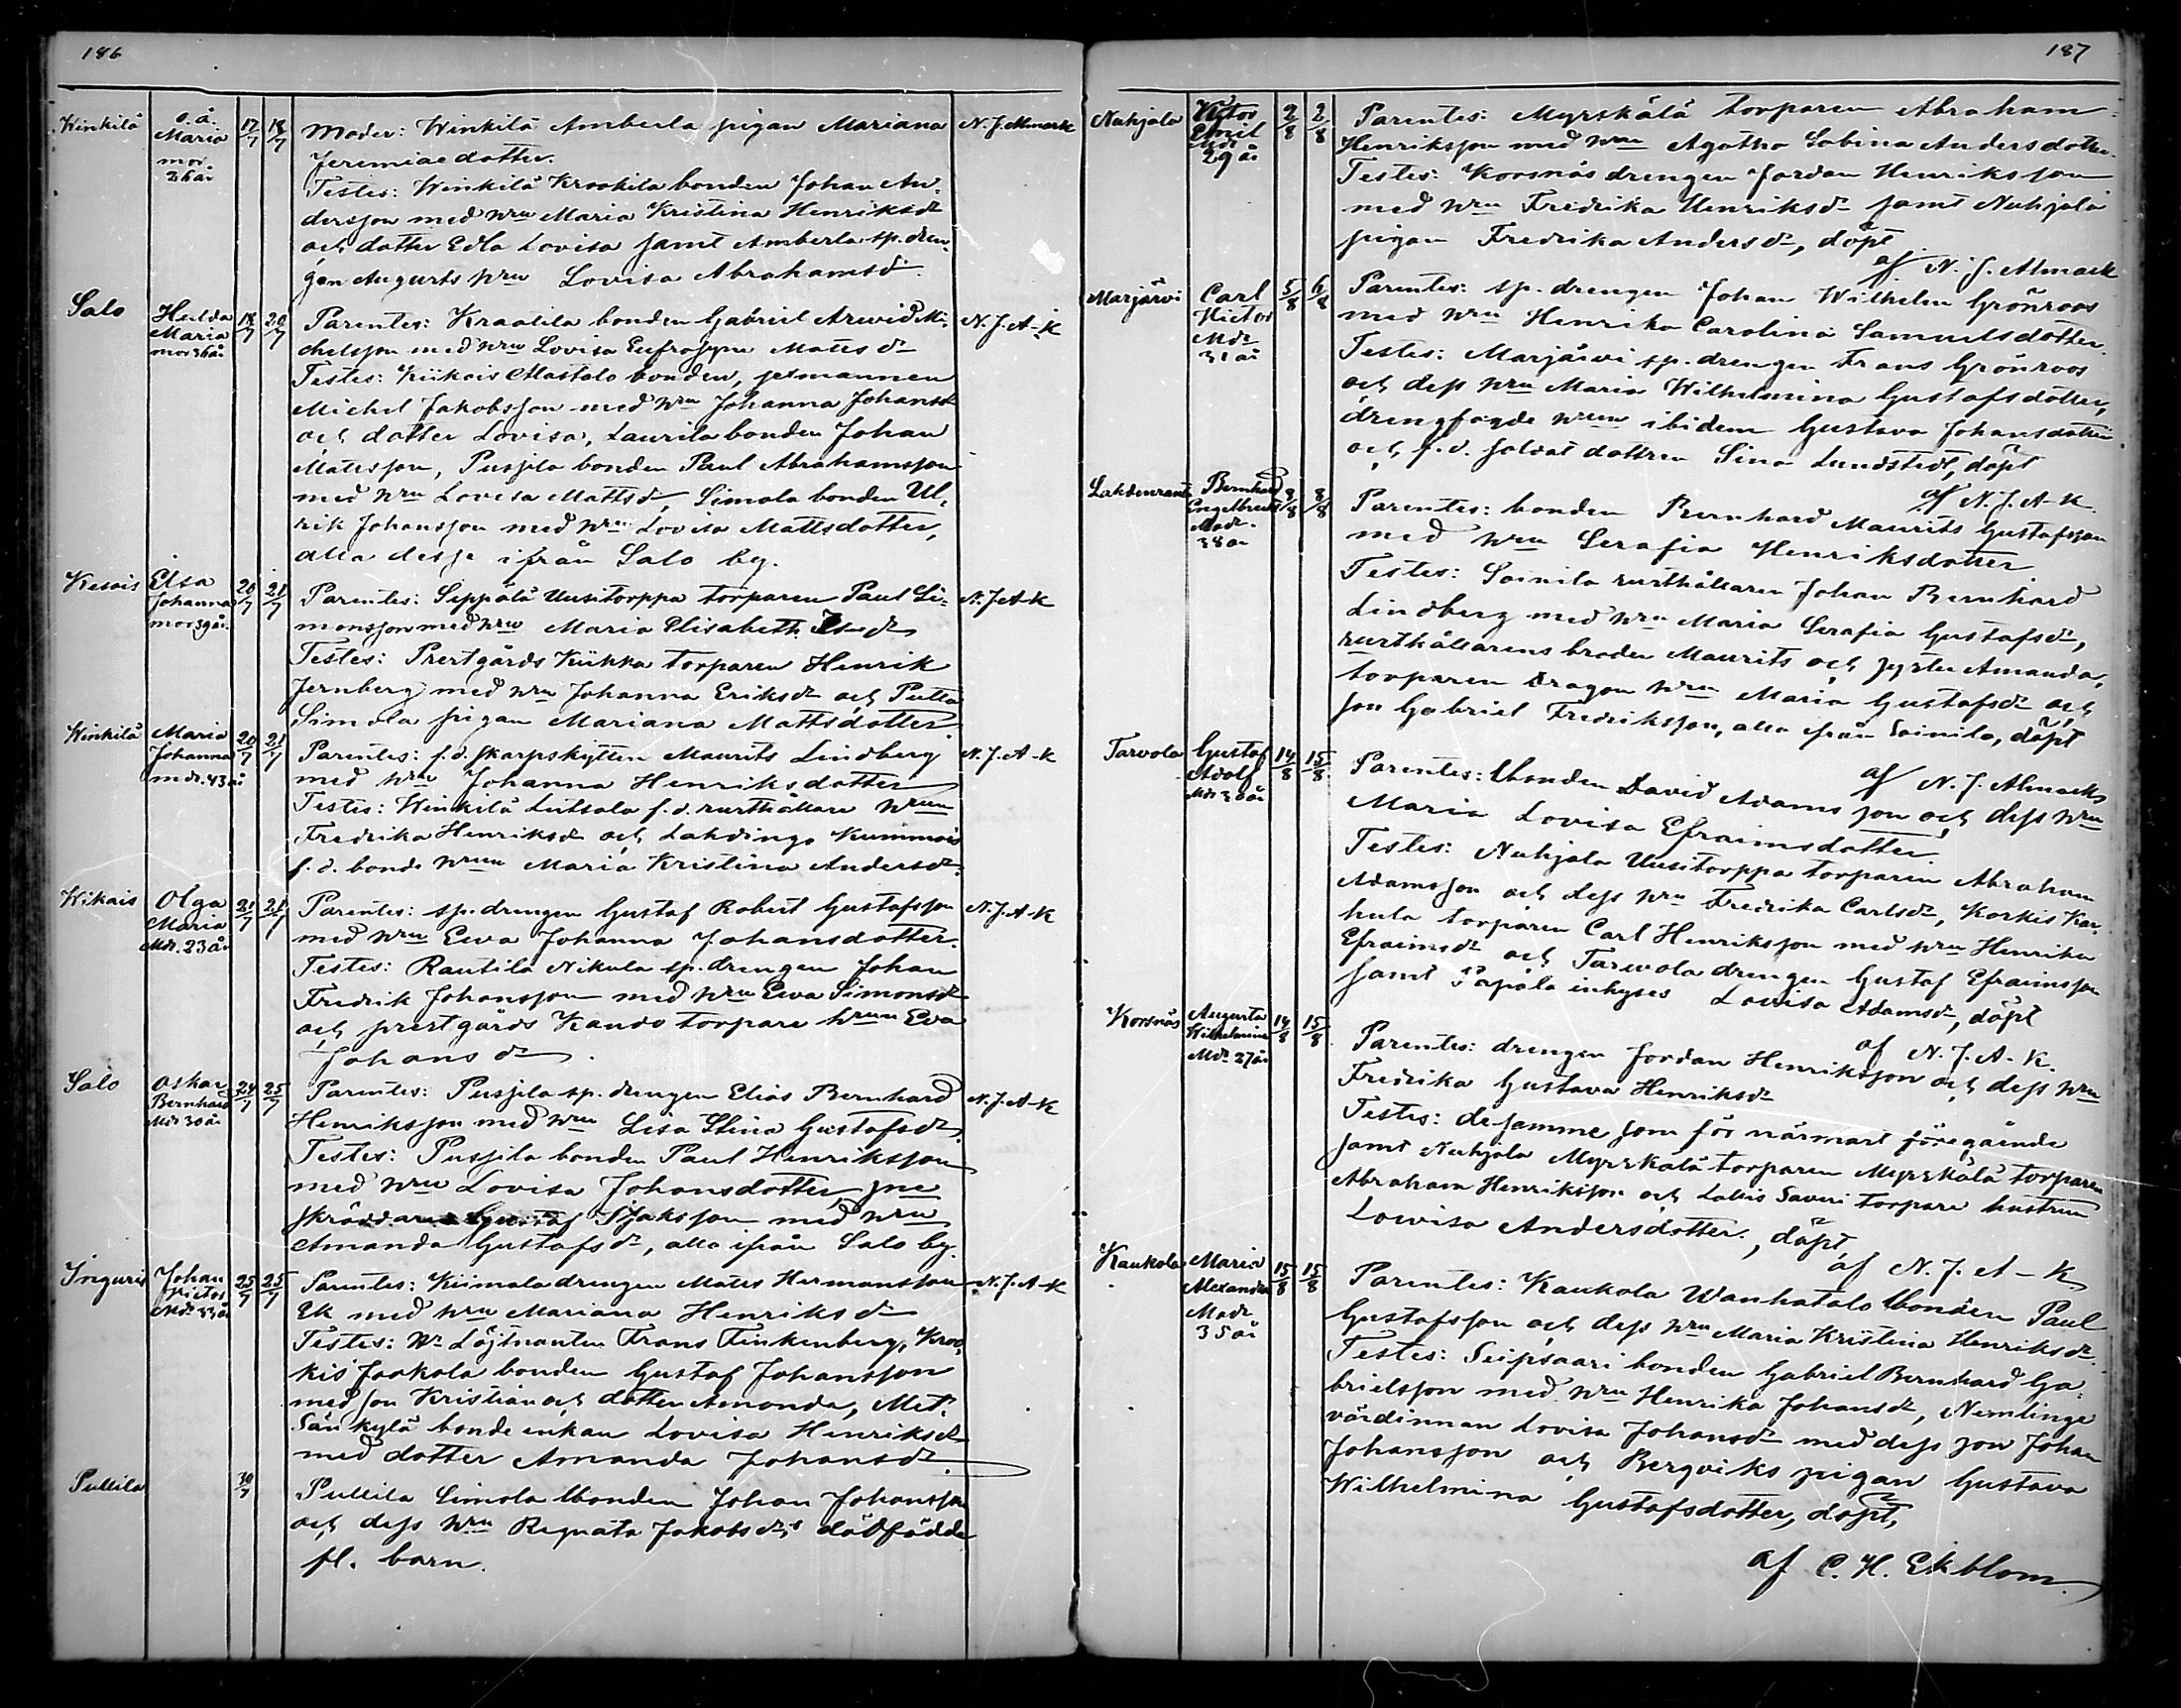 186
Winkilä o.ä. Maria mor. 26 år 17/7 18/7 Moder: Winkilä Amberla pigan Mariana N. J. Almark
Jeremiaedotter.
Testes: Winkilä Krookila bonden Johan An-
dersson med hru Maria Kristina Henriksdr
och dotter Edla Lovisa samt Amberla sp. dren-
gen Augusts hru Lovisa Abrahamsdr.
Salo Hulda Maria mor 36 år 18/7 20/7 Parentes: Kraatila bonden Gabriel Arevid Mi- N. J. A-k
chelsson med hru Lovisa Eufrosyne Matsdr
Testes: Kiikois Mastalo bonden, sexmannen
Michel Jakobsson med hru Johanna Johansdr
och dotter Lovisa, Laurila bonden Johan
Matsson, Pusjila bonden Paul Abrahamsson
med hru Lovisa Mattsdr, Simola bonden Ul-
rik Johansson med hru Lovisa Mattsdotter,
alla desse ifrån Salo by.
Kesois Elsa Johanna mor 39 år. 20/7 21/7 Parentes: Seppälä Uusitorppa torparen Paul Si- N. J. A-k
monsson med hru Maria Elisabeth
Testes: Prestgårds Kiikka torparen Henrik
Jernberg med hru Johanna Eriksdr och Putta
Simola pigan Mariana Mattsdotter.
Winkilä Maria Johanna mdr. 43 år 20/7 21/7 Parentes: f.d. skarpskytten Maurits Lindberg N. J. A-k
med hru Johanna Henriksdotter
Testes: Winkilä Lutsala f.d. rusthållare hrun
Fredrika Henriksdr och Lahdingo Kummois
f.d. bonde hrun Maria Kristina Andersdr.
Wikais Olga Maria Mdr. 23 år 21/7 21/7 Parentes: sp. drengen Gustaf Robert Gustafsson N. J. A-k
med hru Ewa Johanna Johansdotter.
Testes: Rautila Nikula sp. drengen Johan
Fredrik Johansson med hru Ewa Simonsdr
och prestgårds Kando torpare hrun Eva
Johansdr.
Salo Oskar Bernhard Mdr 30 år 24/7 25/7 Parentes: Pusjila sp. drengen Elias Bernhard N. J. A-k
Henriksson med hru Lisa Stina Gustafsdr.
Testes: Pusjila bonden Paul Henriksson
med hru Lovisa Johansdotter, sne
skräddaren Gustaf Isaksson med hru
Amanda Gustafsdr, alla ifrån Salo by.
Inguris Johan Victor Mdr 33 år 25/7 25/7 Parentes: Kiimala drengen Mats Hermansson N. J. A-k
Ek med hru Mariana Henriksdr
Testes: Hr Löjtnanten Frans Finkenberg, Kroo-
kis Jaakola bonden Gustaf Johansson
med son Kristian och dotter Amanda, Met-
sänkylä bonde enkan Lovisa Henriksdr
med dotter Amanda Johansdr.
Pullila 30/7 Pullila Simola bonden Johan Johansson
och dess hru Regnata Jakobsdrs dödfödda
fl. barn.
187
Nuhjala Victor Emil Mdr 29 år 2/8 2/8 Parentes: Myrskälä torparen Abraham
Henriksson med hru Agatha Sabina Andersdotter.
Testes: Korsnäs drengen Jordan Henriksson
med hru Fredrika Henriksdr samt Nuhjala
pigan Fredrika Andersdr, döpt
af N. J. Almark
Marjärvi Carl Victor Mdr 31 år 5/8 6/8 Parentes: sp. drengen Johan Wilhelm Grönroos
med hru Henrika Carolina Samuelsdotter.
Testes: Marjärvi sp. drengen Frans Grönroos
och dess hru Maria Wilhelmina Gustafsdotter,
drengfogde hrun ibidem Gustava Johansdotter
och f.d. soldat dottren Sina Lundstedt, döpt
af N. J. A-k.
Lahdenranta Bernhard Engelbrekt Modr. 38 år 8/8 8/8 Parentes: bonden Bernhard Maurits Gustafsson
med hru Serafia Henriksdotter
Testes: Soinila rusthållaren Johan Bernhard
Lindberg med hru Maria Serafia Gustafsdr,
rusthållarens broder Maurits och syster Amanda,
torparen Dragon hru Maria Gustafsdr och
son Gabriel Fredriksson, alla ifrån Soinila, döpt
af N. J. Almark
Tarvola Gustaf Adolf 14/8 15/8 Parentes: bonden David Adamsson och dess hru
Maria Lovisa Efraimsdotter.
Testes: Nuhjala Uusitorppa torparen Abraham
Adamsson och dess hru Fredrika Carlsdr, Korkis Kar-
hula torparen Carl Henriksson med hru Henrika
Efraimsdr och Tarvola drengen Gustaf Efraimsson
samt Papala inhyses Lovisa Adamsdr, döpt
af N. J. A-k.
Korsnäs Augusta Wilhelmina Mdr 27 år 14/8 15/8 Parentes: drengen Jordan Henriksson och dess hru
Fredrika Gustava Henriksdr
Testes: desamme som för närmast föregående
samt Nuhjala Myrskälä torparen Myrskälä torparen
Abraham Henriksson och Lallis Saveri torpare hustrun
Lowisa Andersdotter, döpt
af N. J. A-k
Kaukola Maria Alexandra Modr 35 år 15/8 15/8 Parentes: Kaukola Wanhatalo bonden Paul
Gustafsson och dess hru Maria Kristina Henriksdr.
Testes: Seipsaari bonden Gabriel Bernhard Ga-
brielsson med hru Henrika Johansdr, Nemlinge
värdinnan Lovisa Johansdr med dess son Johan
Johansson och Bergviks pigan Gustava
Wilhelmina Gustafsdotter, döpt,
af C. H. Ekblom